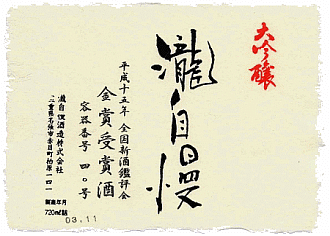 大吟醸
瀧自慢
平成十五年 全国新酒鑑評会
金賞受賞酒
容器番号 四〇号
瀧自慢酒造株式会社
三重県名張市赤目町柏原一四一
製造年月
720ml詰
03.11